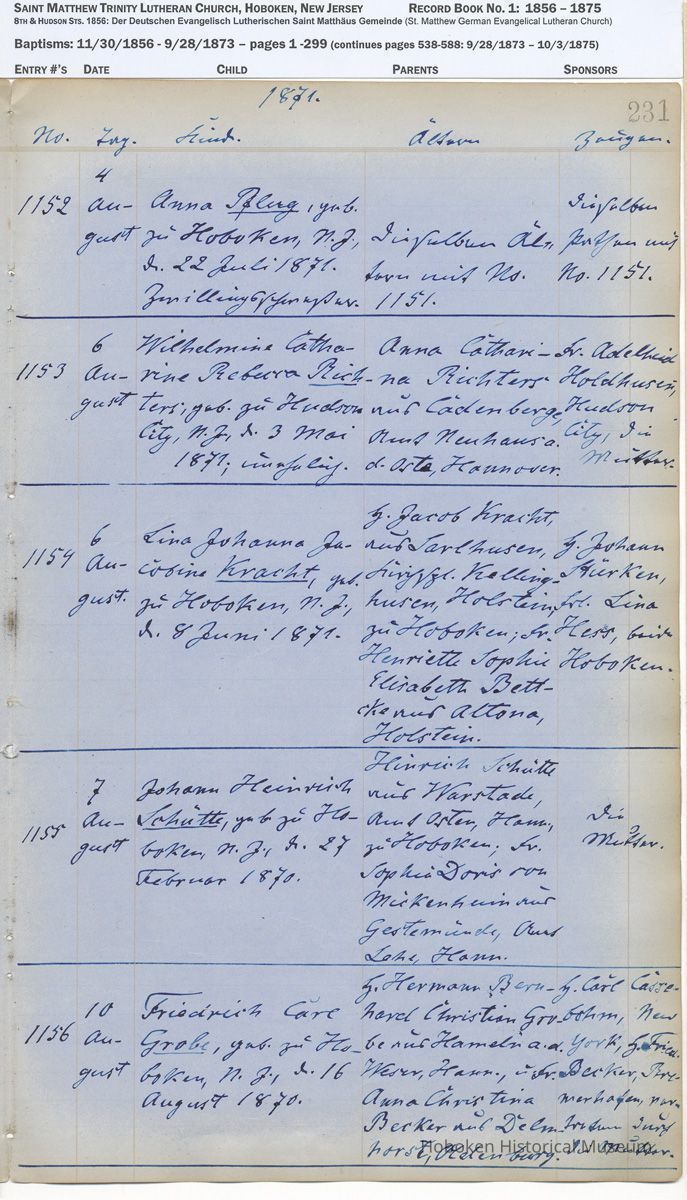 SAINT MATTHEW TRINITY LUTHERAN CHURCH, HOBOKEN, NEW JERSEY RECORD BOOK NO. 1: 1856 – 1875
8TH & HUDSON STS. 1856: Der Deutschen Evangelisch Lutherischen Saint Matthäus Gemeinde (St. Matthew German Evangelical Lutheran Church)
Baptisms: 11/30/1856 - 9/28/1873 – pages 1 -299 (continues pages 538-588: 9/28/1873 – 10/3/1875)
ENTRY #'S DATE CHILD PARENTS SPONSORS
1871.
231
No. Tag. Kind. Ältern Zeugen.
1152
4
Au-
gust
Anna Pflug, geb.
zu Hoboken, N. J.,
d. 22 Juli 1871.
Zwillingsschwester.
Dieselben Äl-
tern mit No.
1151.
Dieselben
Pathen mit
No. 1151.
1153
6
Au-
gust
Wilhelmine Catha-
rine Rebecca Rich-
ters, geb. zu Hudson
City, N. J., d. 3 Mai
1871; unehelig.
Anna Cathari-
na Richters
aus Cadenberge,
Amt Neuhaus a.
d. Oste, Hannover.
Fr. Adelheid
Holdhusen,
Hudson
City, die
Mutter.
1154
6
Au-
gust.
Lina Johanna Ja-
cobine Kracht, geb.
zu Hoboken, N. J.,
d. 8 Juni 1871.
H. Jacob Kracht,
aus Sarlhusen,
Kirchspl. Kelling-
husen, Holstein,
zu Hoboken; Fr.
Henriette Sophie
Elisabeth Bett-
cke aus Altona,
Holstein.
H. Johann
Stürken,
Frl. Lina
Hess, beide
Hoboken.
1155
7
Au-
gust
Johann Heinrich
Schütte, geb zu Ho-
boken, N. J., d. 27
Februar 1870.
Hinrich Schütte
aus Warstade,
Amt Osten, Hann.,
zu Hoboken; Fr.
Sophie Doris von
Mickenheim aus
Gestemünde, Amt
Lehe, Hann.
Die
Mutter.
1156
10
Au-
gust
Friedrich Carl
Grobe, geb. zu Ho-
boken, N. J., d. 16
August 1870.
H. Hermann Bern-
hard Christian Gro-
be aus Hameln a. d.
Weser, Hann., u. Fr.
Anna Christina
Becker aus Delmen-
horst, Oldenburg.
H. Carl Casse-
bohm, New
York, H. Fried.
Becker, Bre-
merhafen, ver-
treten durch
Hoboken Historical Museum